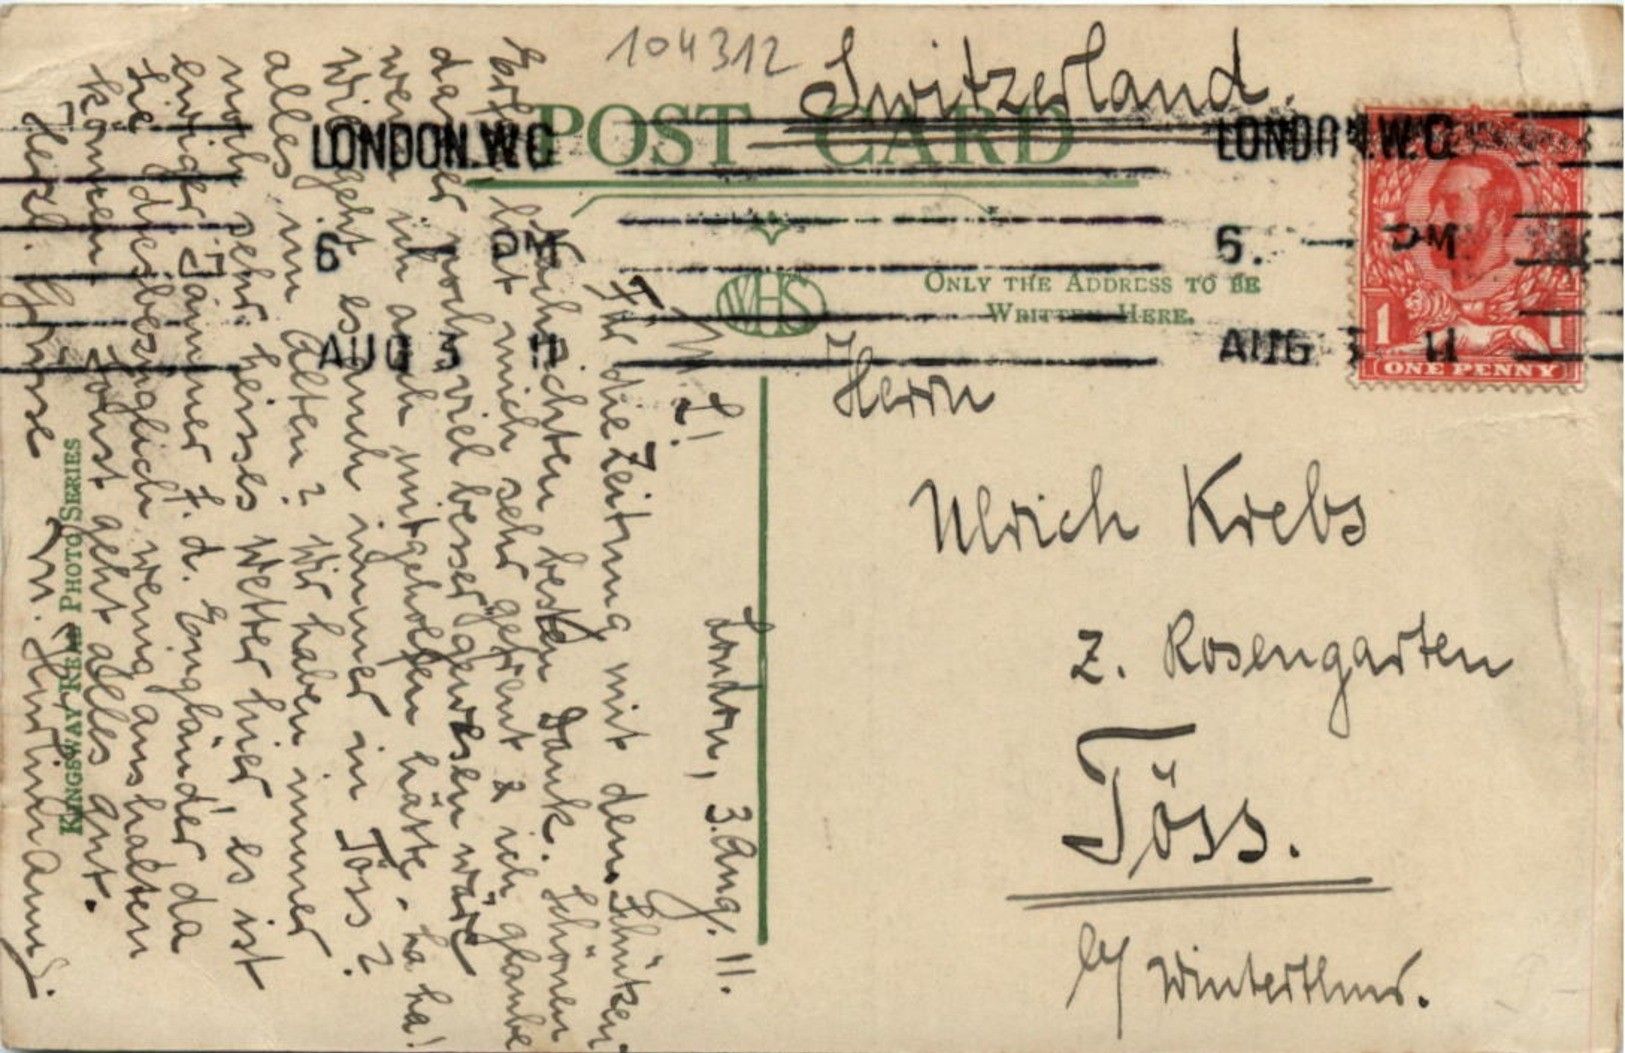 104312
Switzerland.
POST CARD
LONDON.W.C
6 PM
AUG 3 11
LONDON.W.C
6. PM
AUG 3 11
WHS
ONLY THE ADDRESS TO BE
WRITTEN HERE.
ONE PENNY
1 1
Herrn
Ulrich Krebs
z. Rosengarten
Töss.
b/ Winterthur.
KINGSWAY REAL PHOTO SERIES
London, 3. Aug. 11.
M. L!
Für die Zeitung mit den Schützen-
Nachrichten besten Dank. Schönen
Erfolg hat mich sehr gefreut & ich glaube
dass er noch viel besser gewesen wäre
wenn ich auch mitgeholfen hätte. ha ha!
Wie geht es auch immer in Töss?
alles im Alten? Wir haben immer
noch sehr heisses Wetter hier, es ist
ewiger Jammer f. d. Engländer da
sie diesbezüglich wenig aushalten
können. Sonst geht alles gut.
Herzl. Grüsse